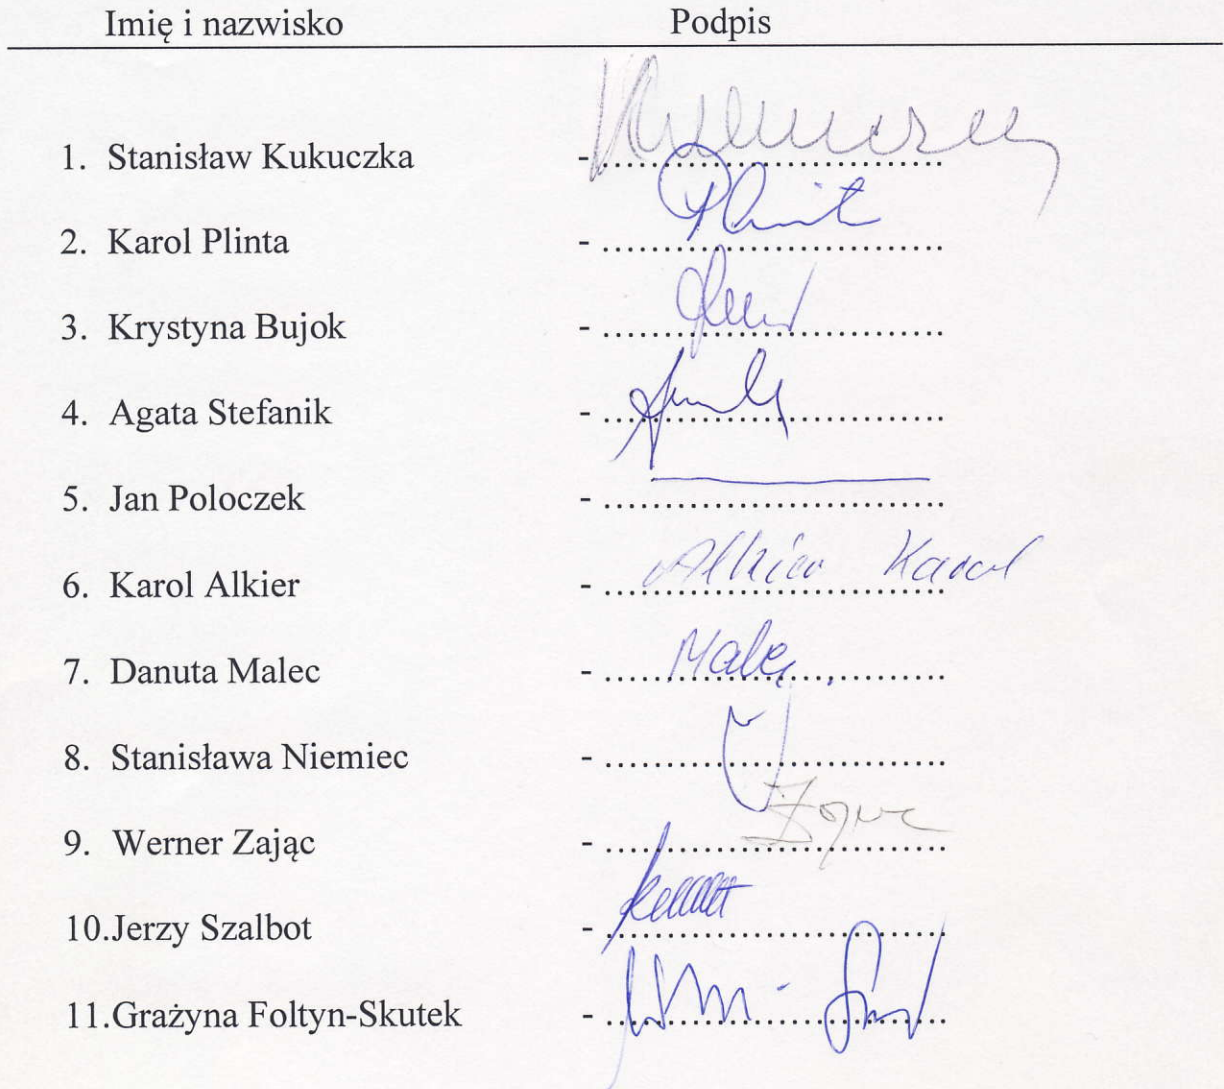 Imię i nazwisko Podpis
1. Stanisław Kukuczka - ............................
2. Karol Plinta - ............................
3. Krystyna Bujok - ............................
4. Agata Stefanik - ............................
5. Jan Poloczek - ............................
6. Karol Alkier - Alkier Karol
7. Danuta Malec - Malec
8. Stanisława Niemiec - ............................
9. Werner Zając - Zając
10.Jerzy Szalbot - ............................
11.Grażyna Foltyn-Skutek - ............................